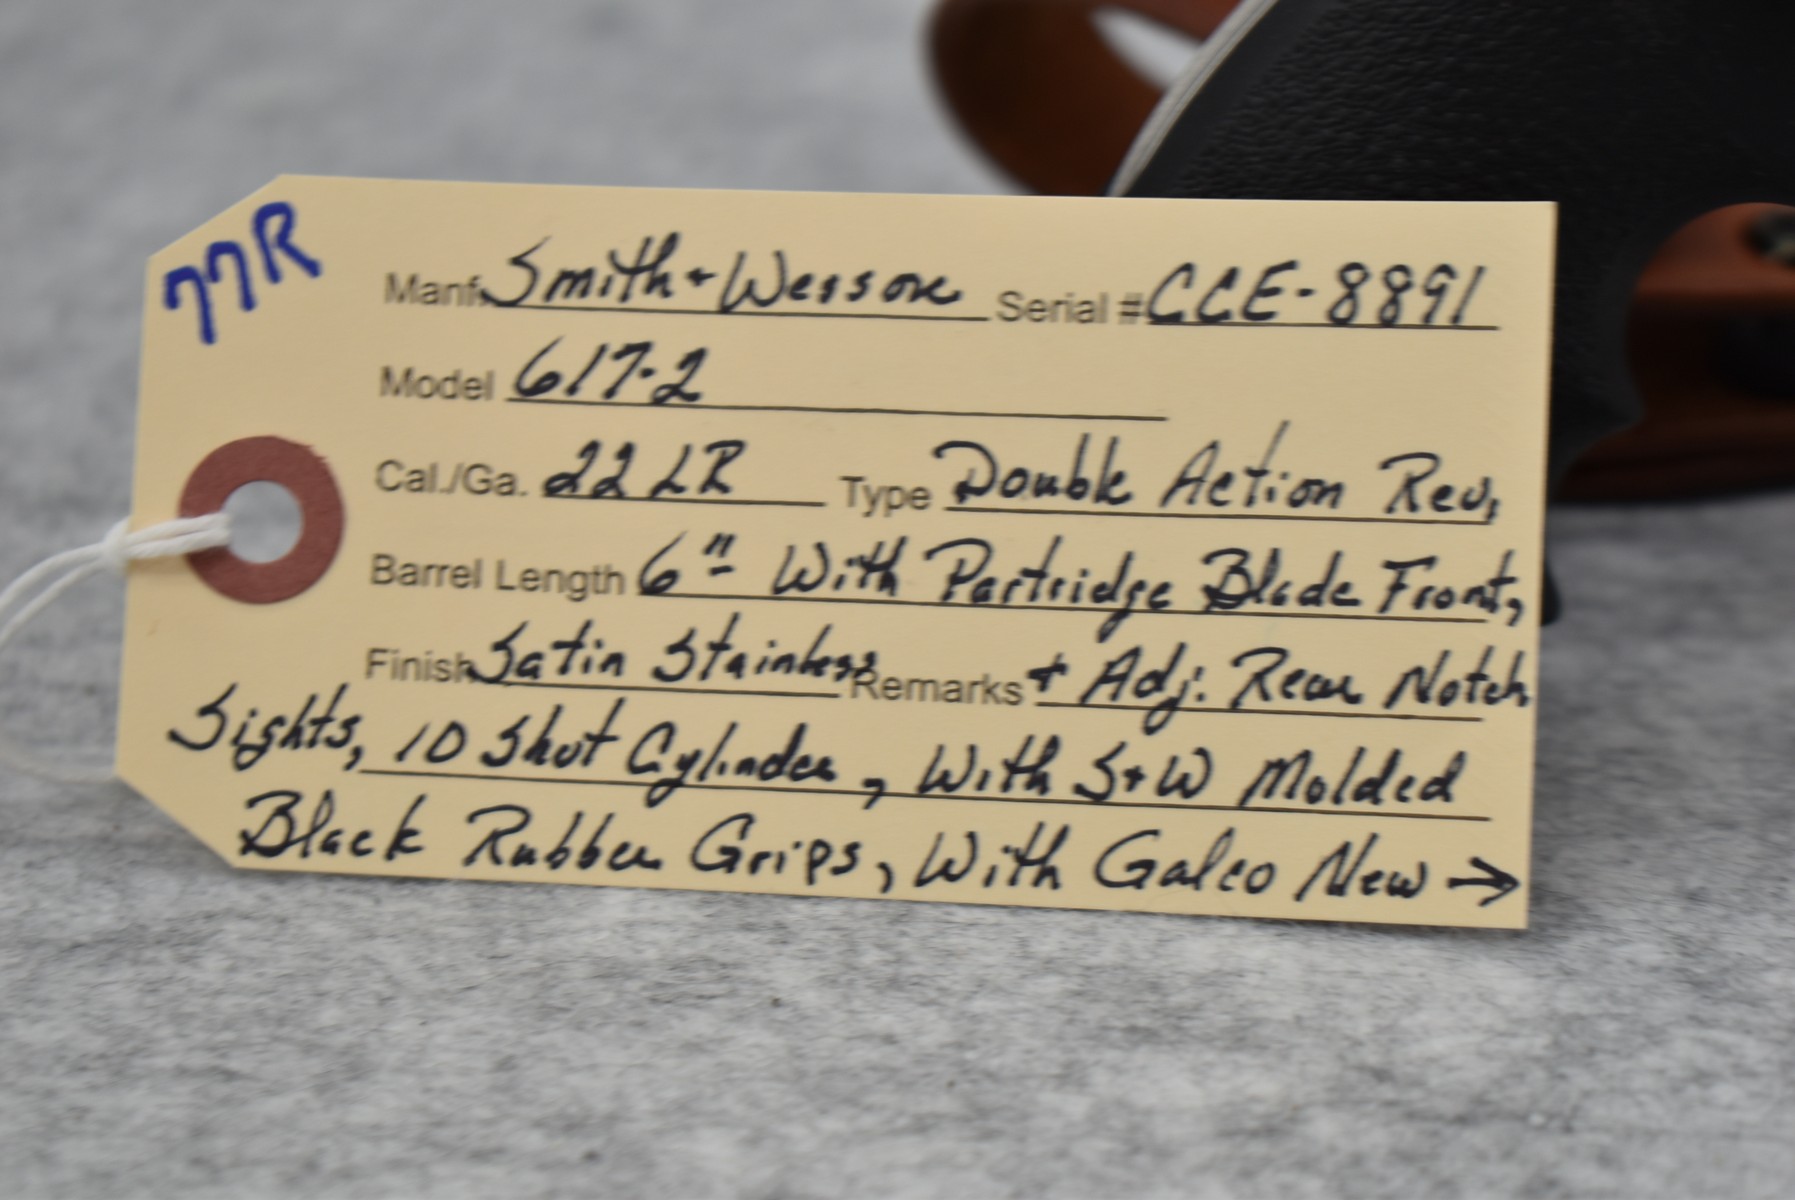 77R
Manf. Smith + Wesson Serial # CCE-8891
Model 617-2
Cal./Ga. 22 LR Type Double Action Rev.
Barrel Length 6" With Partridge Blade Front,
Finish Satin Stainless Remarks + Adj. Rear Notch
Sights, 10 Shot Cylinder, With S+W Molded
Black Rubber Grips, With Galco New →